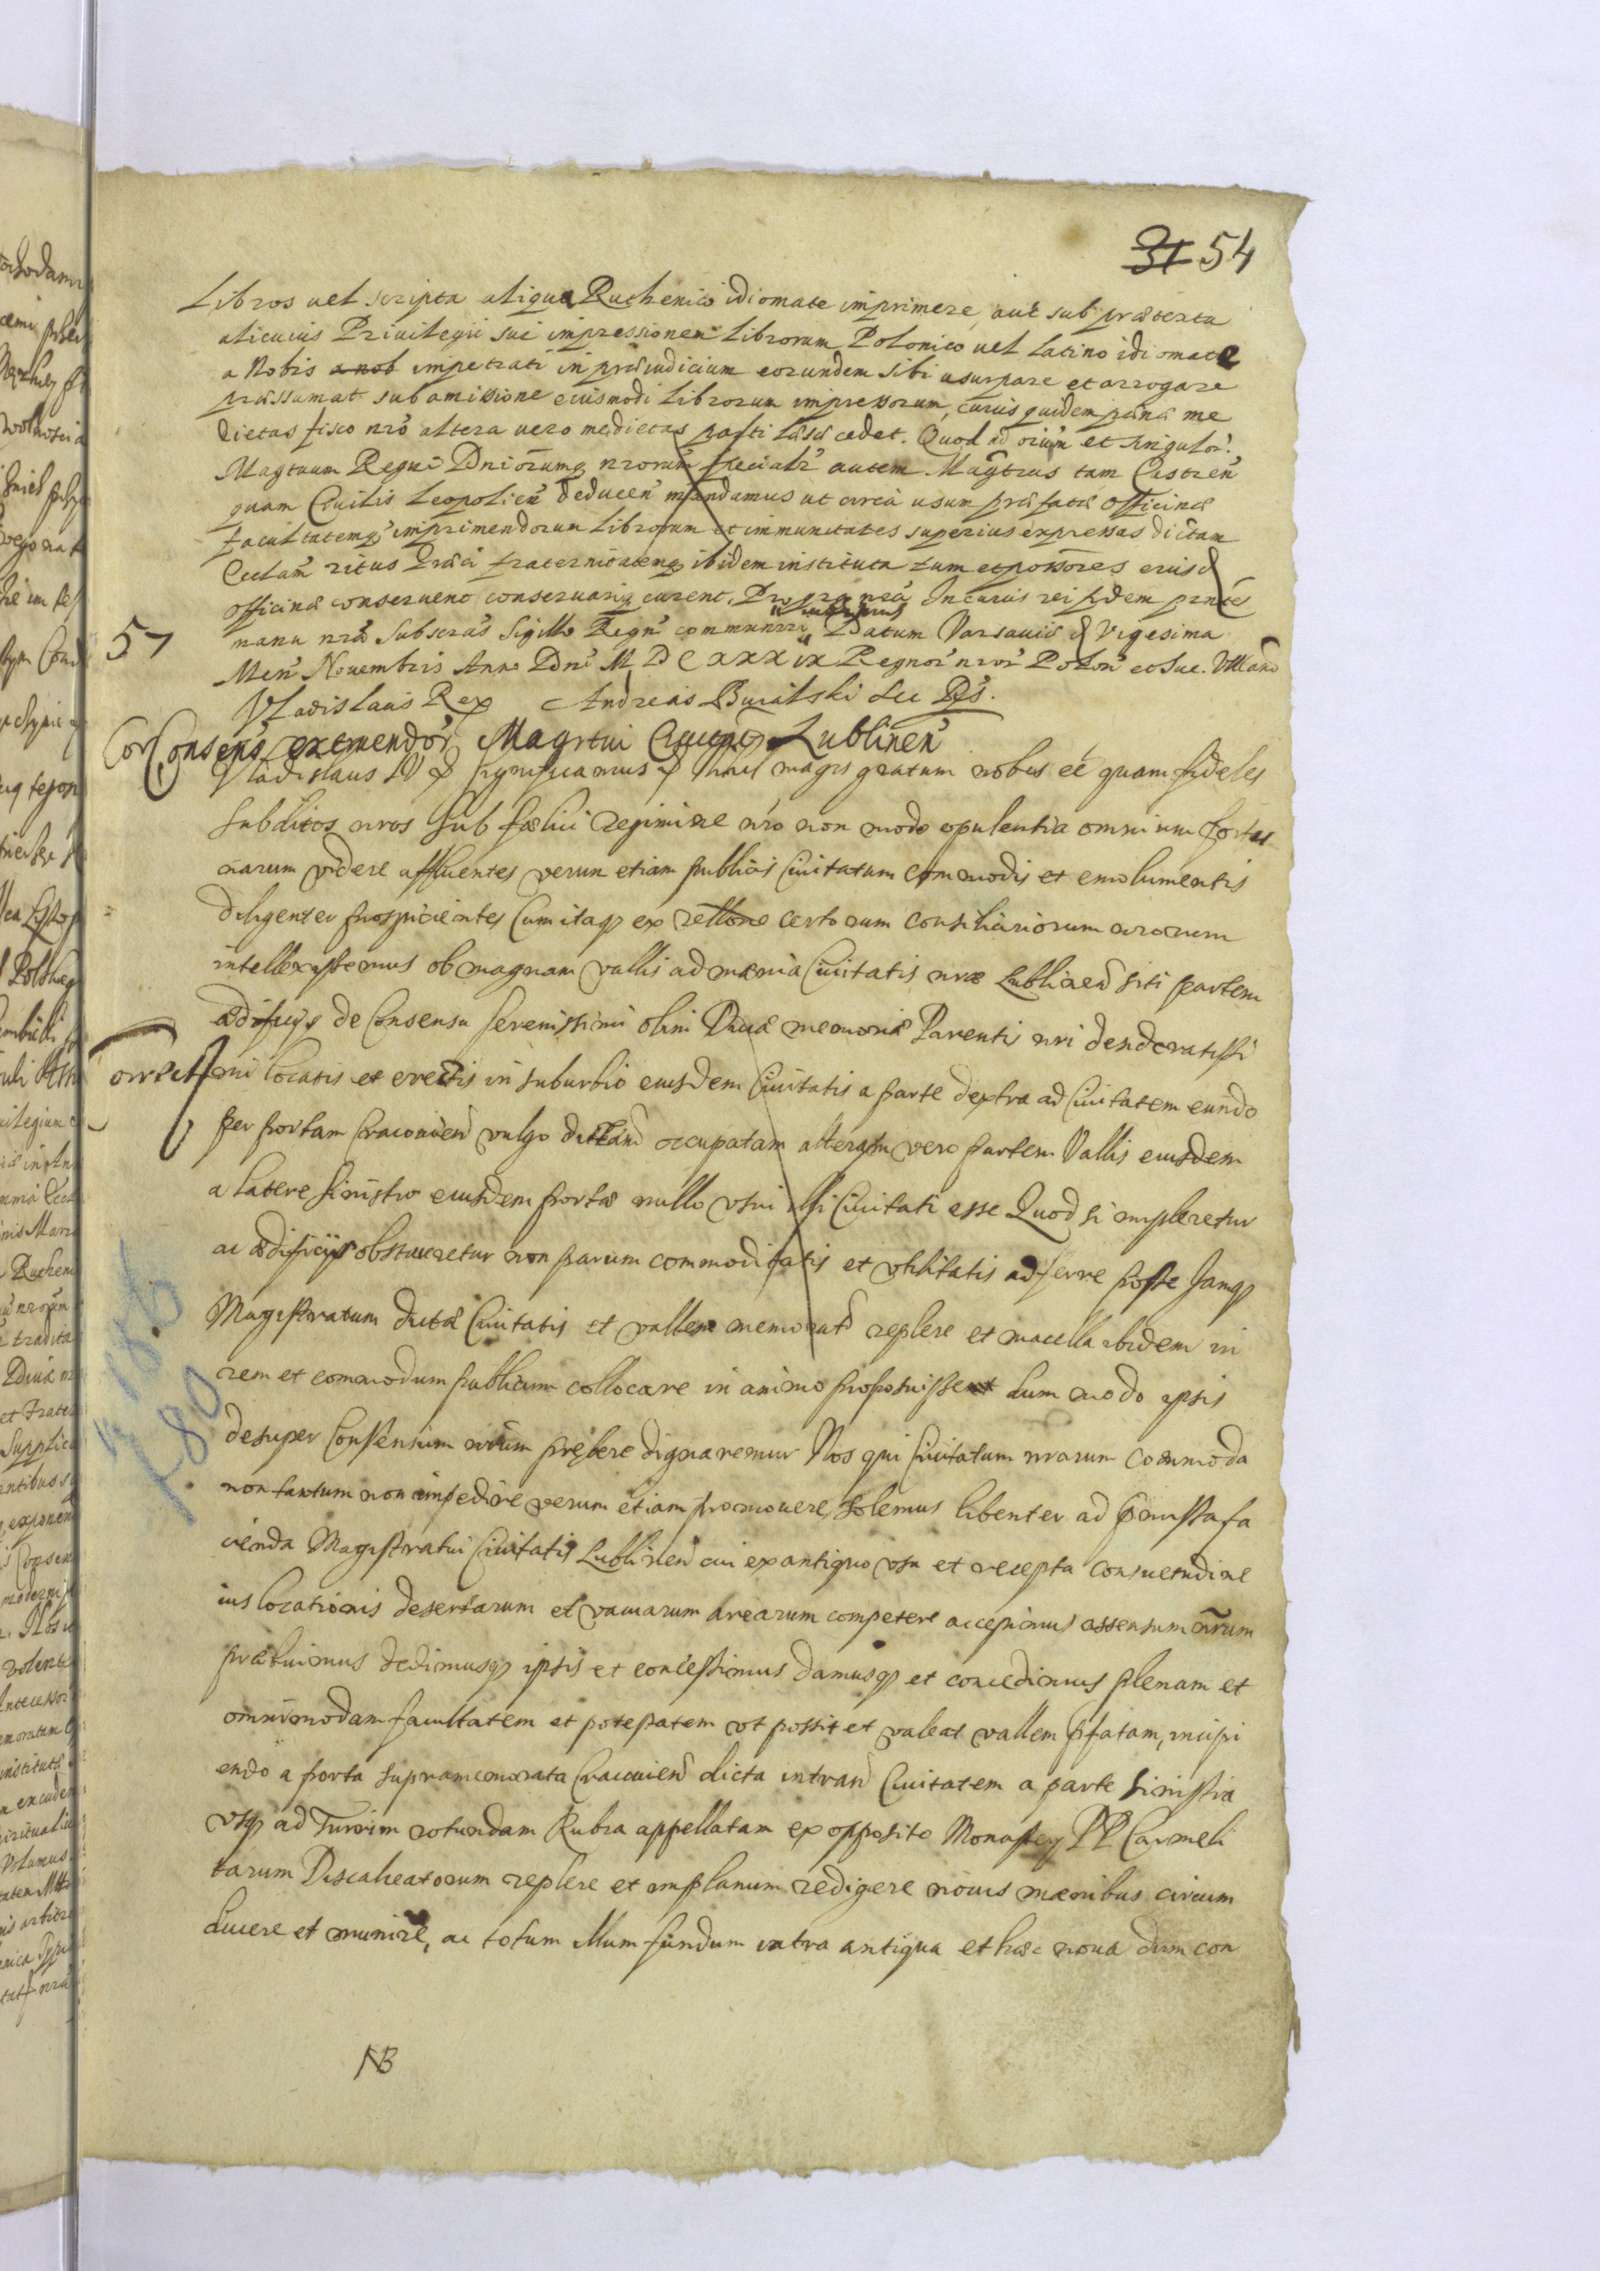 31 54
Libros vel scripta aliqua Ruthenico idiomate imprimere, aut sub prætextu
alicuius Privilegii sui impressionem Librorum Polonico vel latino idiomate
a Nobis a nob impetrati in præiudicium eorundem sibi usurpare et arrogare
præssumat sub amissione eiusmodi librorum impressorum, cuius quidem pænæ me
dietas fisco nrõ altera vero medietas parti læsæ cedet. Quod ad oium et singulor.
Magtuum Regni Dniorumq nrorum specialr autem Magtrus tam Castren
quam Civilis Leopolien deducen mandamus ut circa usum præfatæ officinæ
facultatemq imprimendorum Librorum et immunitates superius expressas dictam
Ecclam ritus Græci fraternitatemq ibidem institutã tum et possores eiusd
officinæ conservent conservariq curent. Pro gra nrã In cuius rei fidem pntes
manu nrã subscras Sigillo Regni communiri Datum Varsaviæ d Vigesima
57
Men Novembris Anno Dni M D C XXX IX Regnor nror Polon et Suc.
Vladislaus Rex Andreas
Consens exemendor Magrtui Civit Lublinen
Vladislaus IV & Significamus & Nihil magis gratum nobis eẽ quam fideles
subditos nros sub fælici regimine nrõ non modo opulentia omnium fortu
narum videre affluentes verum etiam publicis Civitatum commodis et emolumentis
diligenter prospicientes Cum itaq ex rellone certorum consiliariorum nrorum
intellexissemus ob magnam vallis ad mænia Civitatis nræ Lublinen siti partem
ædificijs de Consensu Serenissimi olim Divæ memoriæ Parentis nri desideratissi
mi locatis et erectis in suburbio eiusdem Civitatis a parte dextra ad Civitatem eundo
per portam Cracovien vulgo dictam occupatam alteram vero partem Vallis eiusdem
a latere sinistro eiusdem portæ nullo usui illi Civitati esse Quod si impleretur
ac ædificijs obstrueretur non parum commoditatis et utilitatis adferre posse Jamq
Magistratum dictæ Civitatis et vallem memorat replere et macella ibidem in
rem et commodum publicum collocare in animo proposuisset dum modo ipsis
desuper Consensum nrum præbere dignaremur Nos qui Civitatum nrarum commoda
non tantum non impedire verum etiam promovere solemus libenter ad præmissa fa
cienda Magistratui Civitatis Lublinen cui ex antiquo usu et recepta consuetudine
ius locationis desertarum et vacuarum arearum competere accepimus assensum nrum
præbuimus dedimusq ipsis et concessimus damusq et concedimus plenam et
omnimodam facultatem et potestatem ut possit et valeat vallem pfatam, incipi
endo a porta supramemorata Cracovien dicta intrand Civitatem a parte sinistra
usq ad Turrim rotundam Rubra appellatam ex opposito Monastery PP Carmeli
tarum Discalceatorum replere et in planum redigere novis mænibus circum
ducere et munire, ac totum illum fundum intra antiqua et hæc nova dum con
NB